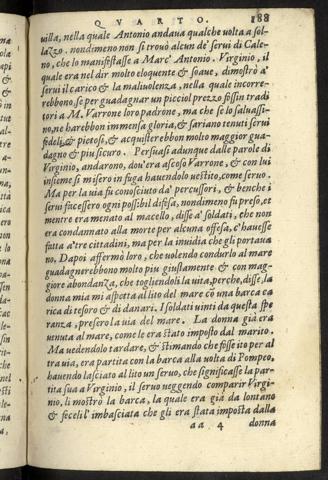 QVARTO. 188
uilla, nella quale Antonio andaua qualche uolta a sol-
lazzo. nondimeno non si trouò alcun de' serui di Cale-
no, che lo manifestasse a Marc' Antonio. Virginio, il
quale era nel dir molto eloquente & soaue, dimostrò a'
serui il carico & la maliuolenza, nella quale incorre-
rebbono, se per guadagnar un picciol prezzo fossin tradi
tori a M. Varrone loro padrone, ma che se lo saluassi-
no, ne harebbon immensa gloria, & sariano tenuti serui
fedeli, & pietosi, & acquisterebbon molto maggior gua-
dagno & piu sicuro. Persuasi adunque dalle parole di
Virginio, andarono, dou'era ascoso Varrone, & con lui
insieme si misero in fuga hauendolo uestito, come seruo.
Ma per la uia fu conosciuto da' percussori, & benche i
serui facessero ogni possibil difesa, nondimeno fu preso, et
mentre era menato al macello, disse a' soldati, che non
era condannato alla morte per alcuna offesa, c'hauesse
fatta a' tre cittadini, ma per la inuidia che gli portaua
no. Dapoi affermò loro, che uolendo condurlo al mare
guadagnerebbono molto piu giustamente & con mag-
giore abondanza, che togliendoli la uita, perche, disse, la
donna mia mi aspetta al lito del mare cō una barca ca
rica di tesoro & di danari. I soldati uinti da questa spe
ranza, presero la uia del mare. La donna già era
uenuta al mare, come le era stato imposto dal marito.
Ma uedendolo tardare, & stimando che fosse ito per al
tra uia, era partita con la barca alla uolta di Pompeo,
hauendo lasciato al lito un seruo, che significasse la par-
tita sua a Virginio, il seruo ueggendo comparir Virgi-
nio, li mostrò la barca, la quale era già da lontano
& feceli l'imbasciata che gli era stata imposta dalla
aa 4 donna